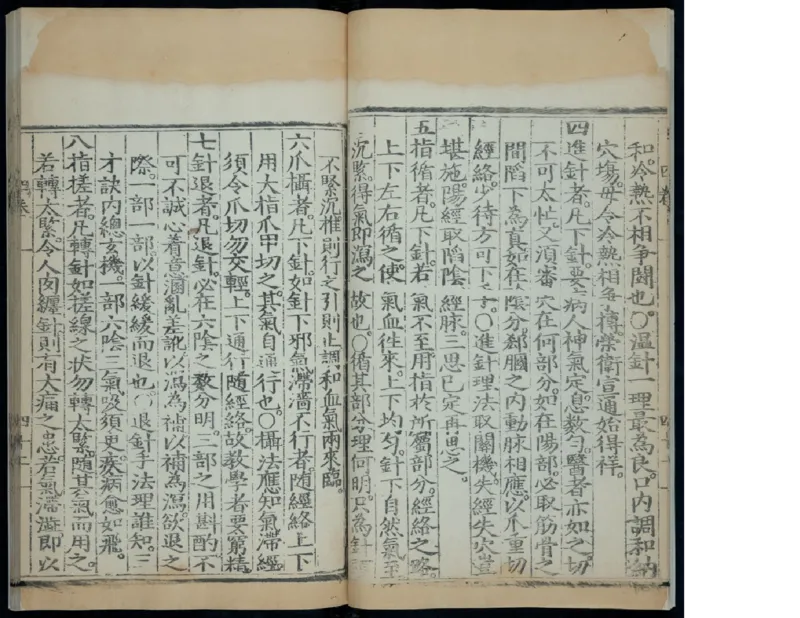 和冷熱不相爭鬪也○温針一理最為良口內調和納
穴塲毋令冷熱相爭摶榮衛宣通始得祥
四進針者凡下針要病人神氣定息數勻醫者亦如之切
不可太忙又須審穴在何部分如在陽部必取筋骨之
間陷下為真如在陰分郄膕之內動脉相應以爪重切
經絡少待方可下手○進針理法取關機失經失穴豈
堪施陽經取陷陰經脉三思已定再思之
五指循者凡下針若氣不至用指於所屬部分經絡之路
上下左右循之使氣血往來上下均勻針下自然氣至
沉緊得氣即瀉之故也○循其部分理何明只為針
不緊沉推則行之引則止調和血氣兩來臨
六爪攝者凡下針如針下邪氣滯濇不行者隨經絡上下
用大指爪甲切之其氣自通行也○攝法應知氣滯經
須令爪切勿交輕上下通行隨經絡故教學者要窮精
七針退者凡退針必在六陰之數分明三部之用斟酌不
可不誠心着意溷亂差訛以瀉為補以補為瀉欲退之
際一部一部以針緩緩而退也○退針手法理誰知三
才訣內總玄機一部六陰三氣吸須臾疾病愈如飛
八指搓者凡轉針如搓線之狀勿轉太緊隨其氣而用之
若轉太緊令人肉纏針則有大痛之患若氣滯澁即以